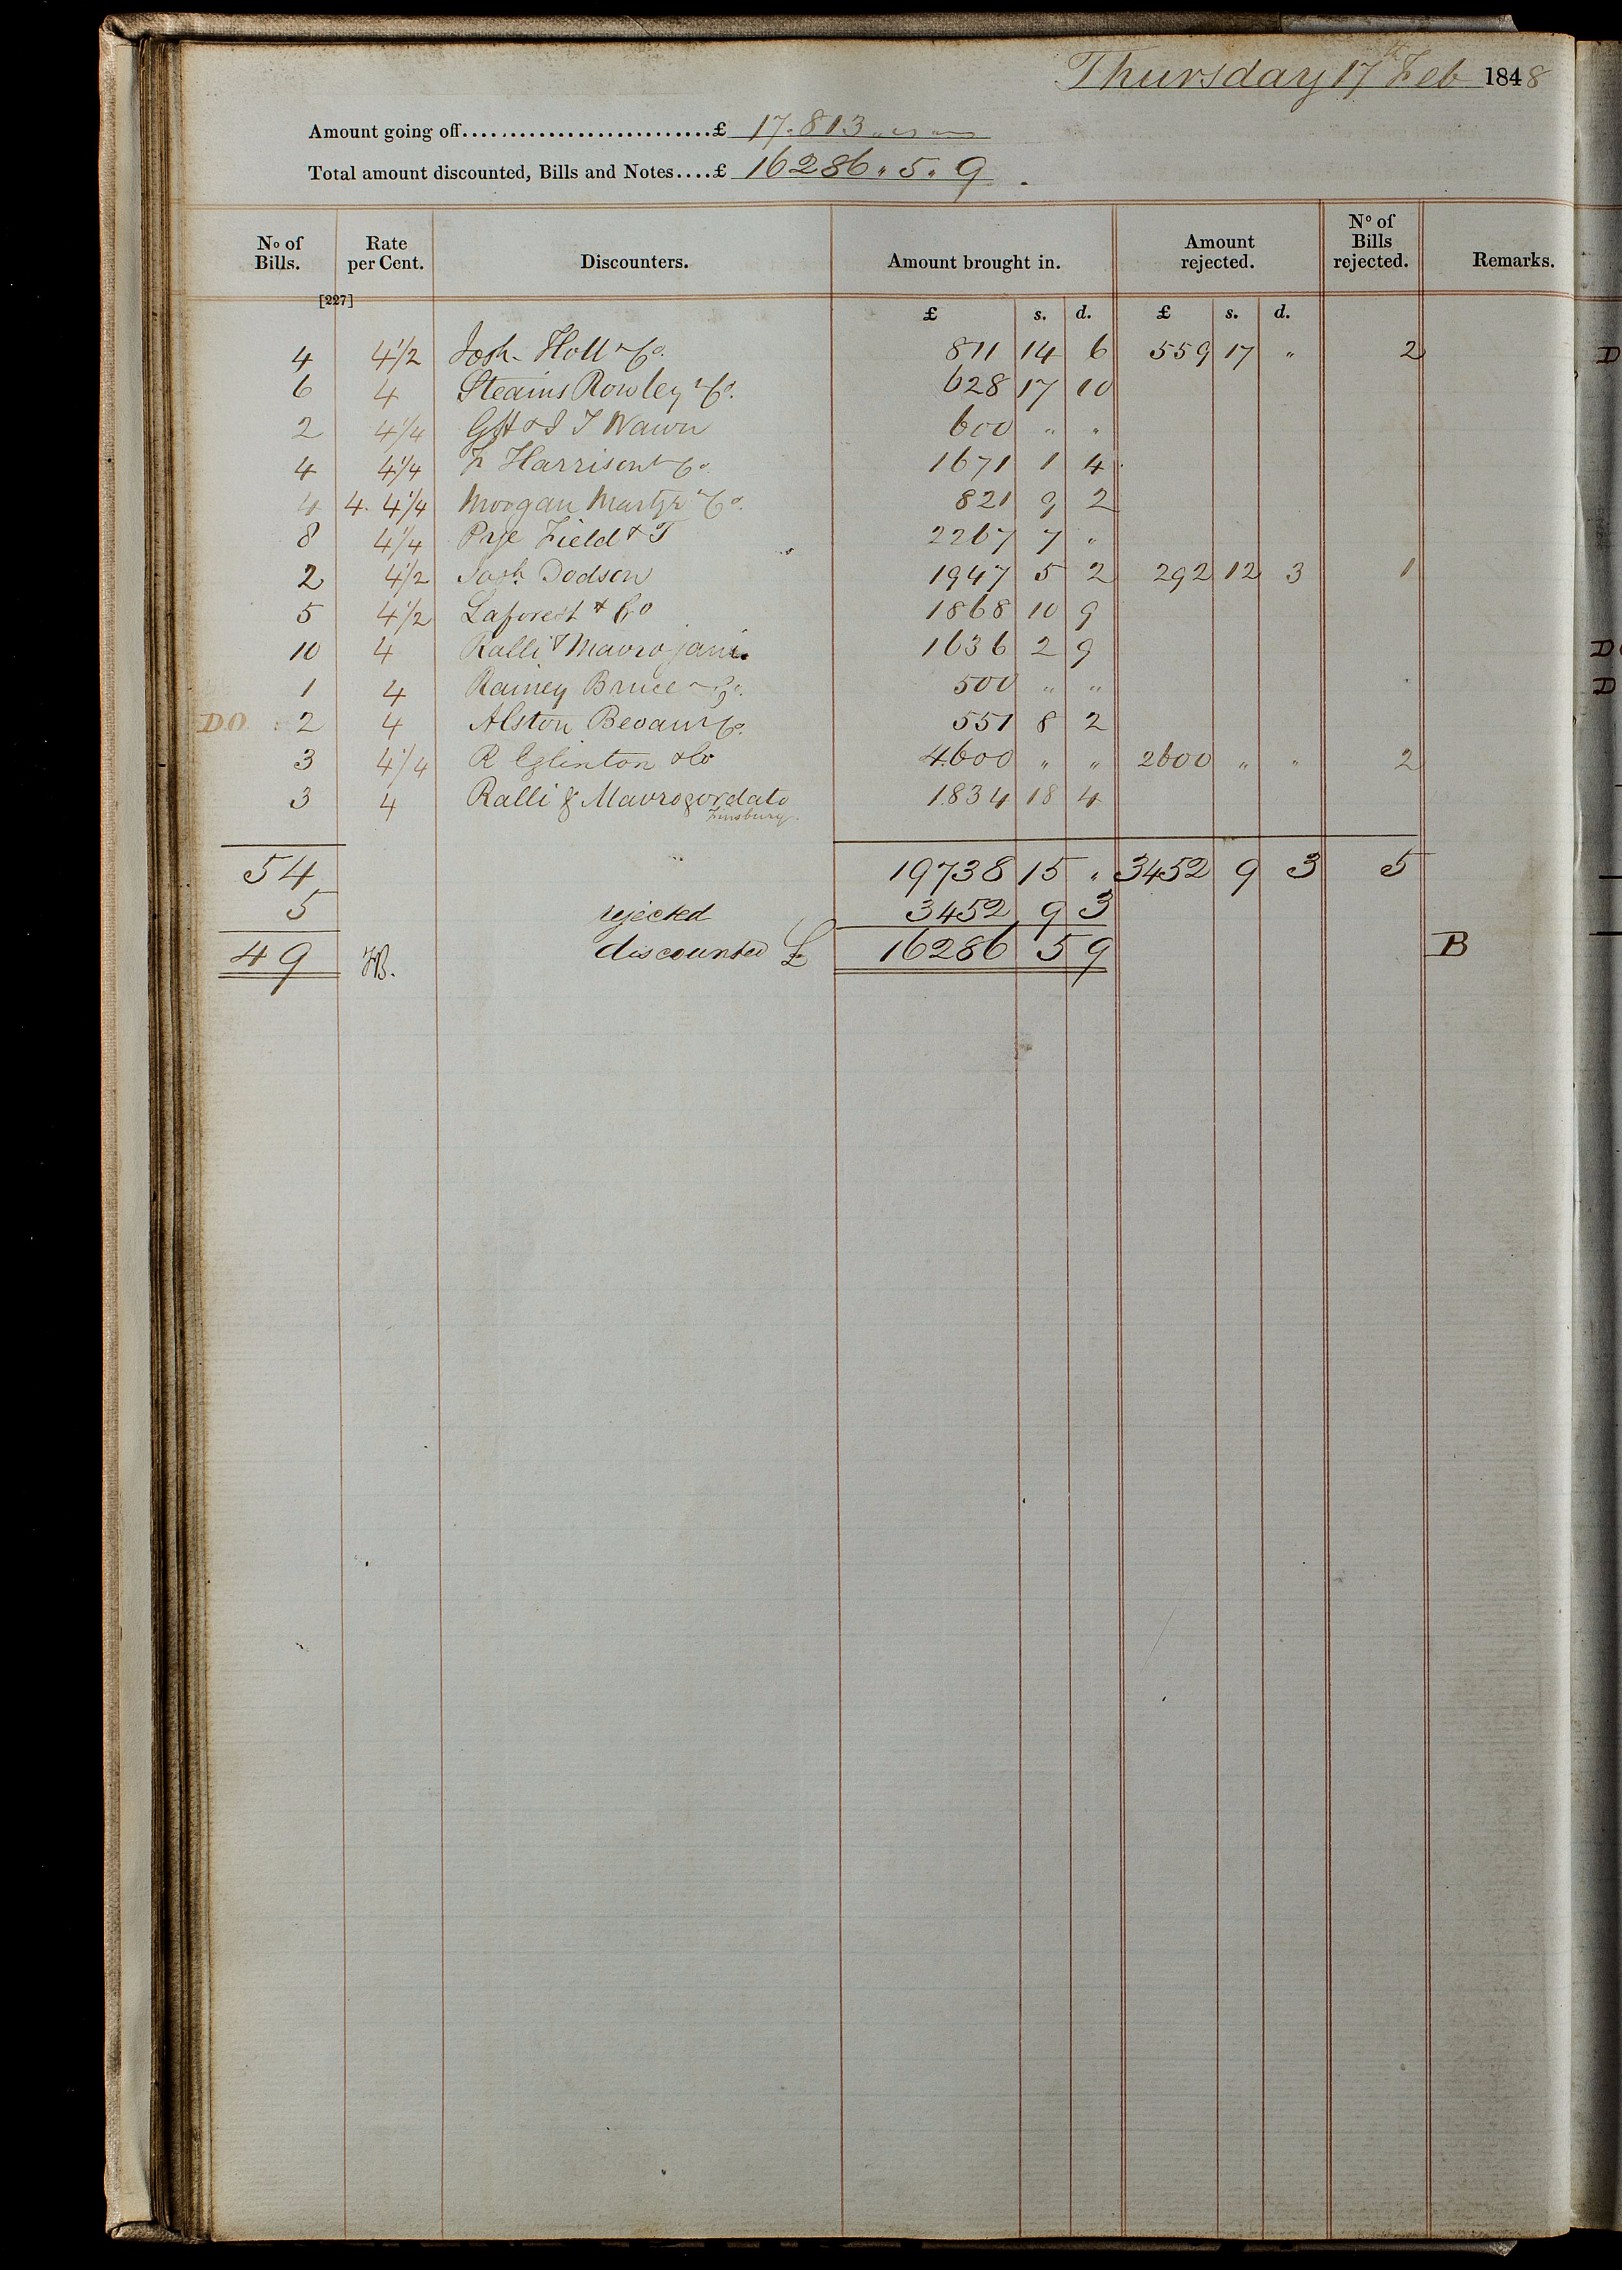 Thursday 17th Feb 1848
Amount going off..........................£ 17.813 " " "
Total amount discounted, Bills and Notes....£ 16286 " 5 " 9
No of Bills. Rate per Cent. Discounters. Amount brought in. Amount rejected. No of Bills rejected. Remarks.
[227]
£ s. d. £ s. d.
4 4 1/2 Josh. Holl & Co. 811 14 6 559 17 " 2
6 4 Steains Rowley & Co. 628 17 10
2 4 1/4 GH & J T Wawn 600 " "
4 4 1/4 Harrison & Co. 1671 1 4
4 4. 4 1/4 Morgan Martyr & Co. 821 9 2
8 4 1/4 Prye Field & T 2267 7 "
2 4 1/2 Josh. Dodson 1947 5 2 292 12 3 1
5 4 1/2 Laforest & Co 1868 10 9
10 4 Ralli & Mavrojani 1636 2 9
1 4 Rainey Bruce & Co. 500 " "
DO 2 4 Alston Bevan & Co. 551 8 2
3 4 1/4 R Eglinton & Co 4600 " " 2600 " " 2
3 4 Ralli & Mavrogordato 1834 18 4
Finsbury.
54 19738 15 " 3452 9 3 5
5 rejected 3452 9 3
49 HB. discounted £ 16286 5 9 B